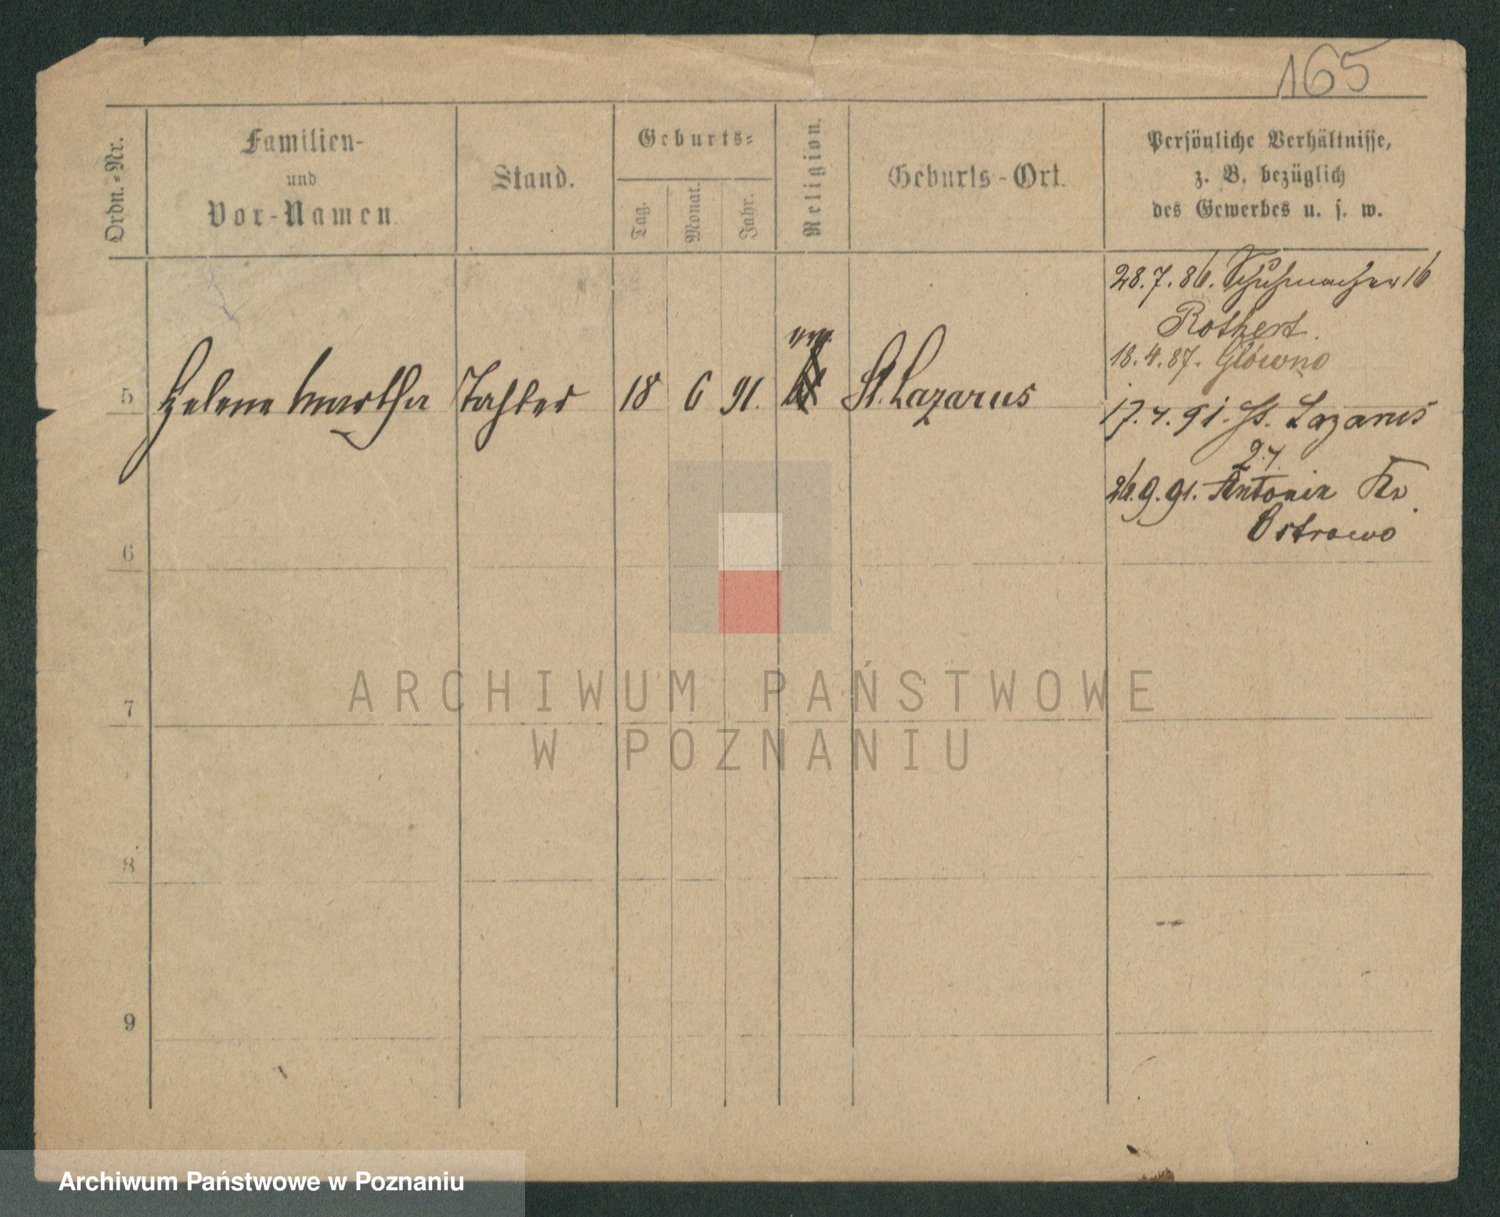 165
Ordn.-Nr.
Familien-
und
Vor-Namen.
Stand.
Geburts-
Tag.
Monat.
Jahr.
Religion.
Geburts-Ort.
Persönliche Verhältnisse,
z. B. bezüglich
des Gewerbes u. s. w.
28.7.86. Schuhmacher 16
Rothert.
18.4.87. Główno
5 Helene Martha Tochter 18 6 91. St. Lazarus
17.4.91. St. Lazarus
26.9.91. Antonin Kr.
Ostrowo
6
7
8
9
ARCHIWUM PAŃSTWOWE
W POZNANIU
Archiwum Państwowe w Poznaniu